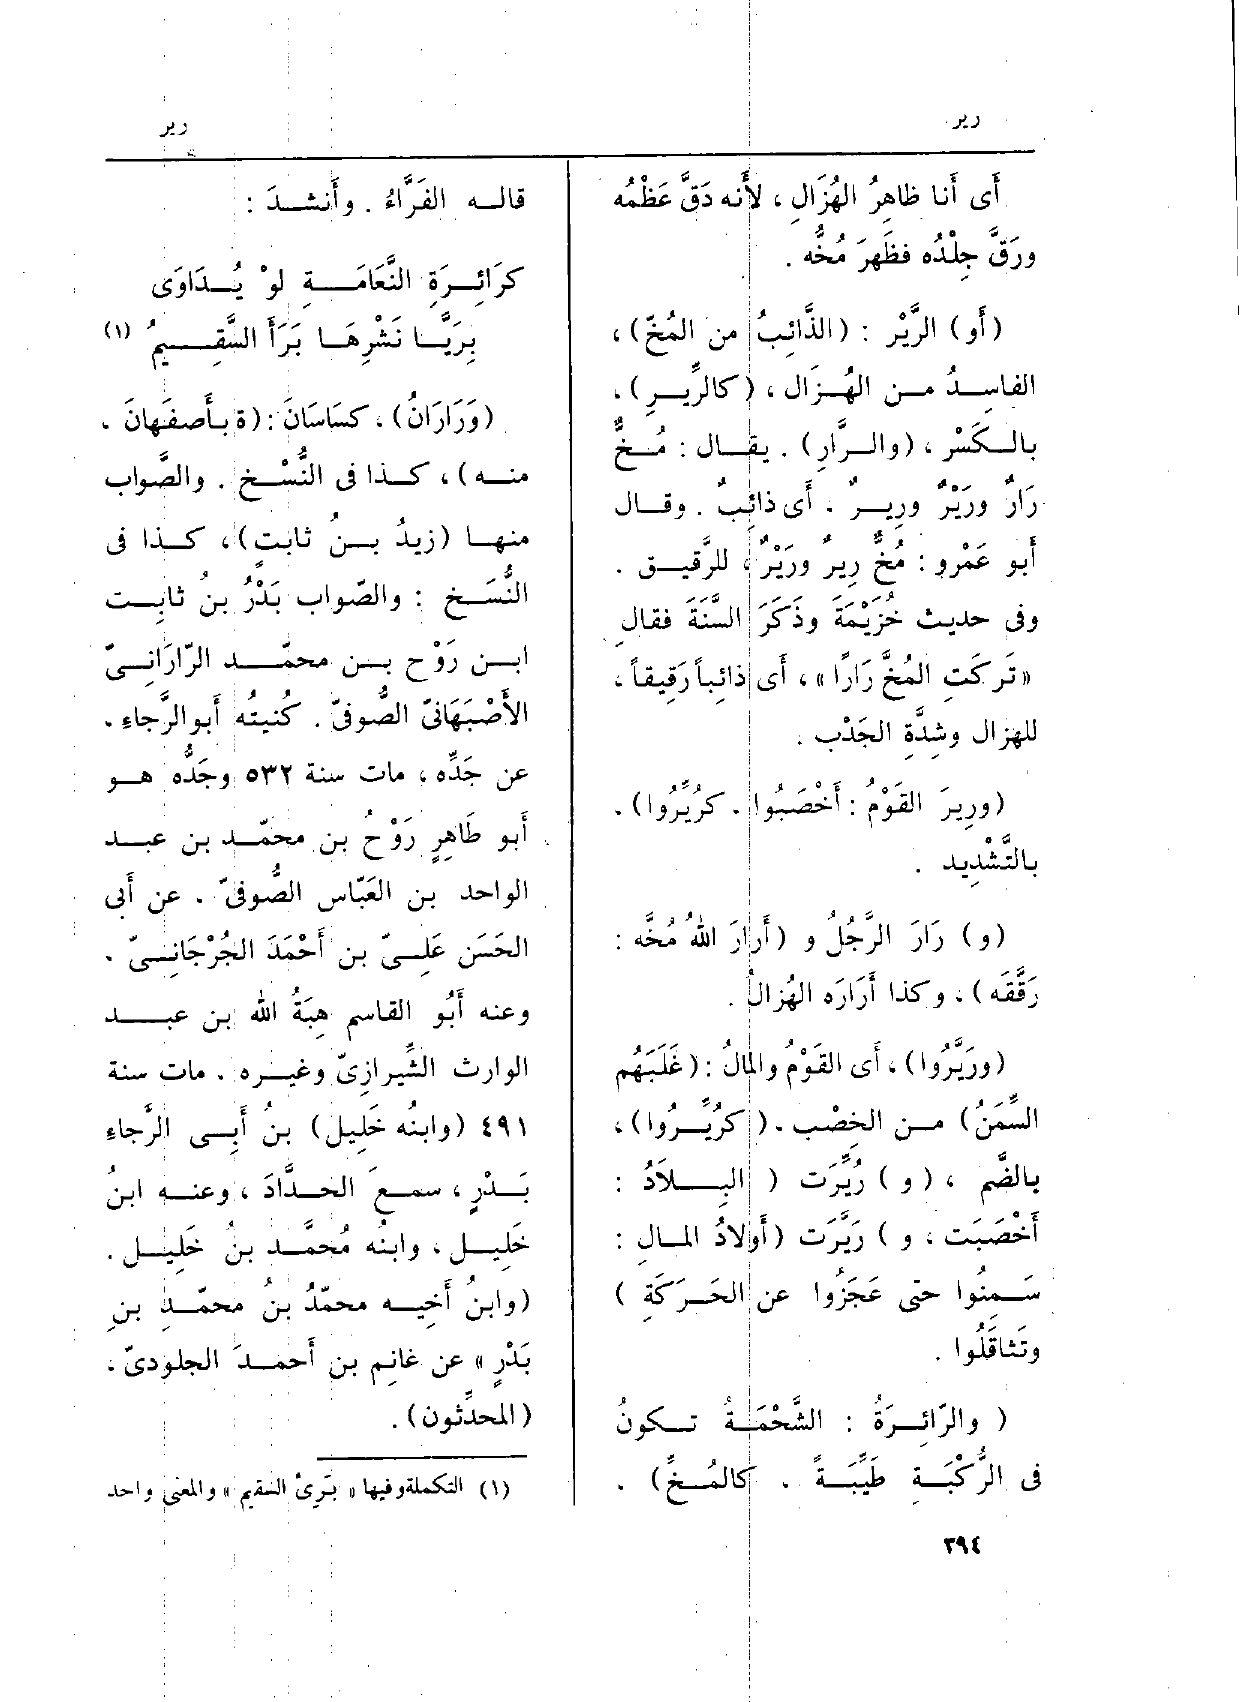 رير
رير
أى أنا ظاهِرُ الهُزَالِ ، لأَنه دَقَّ عَظْمُه
ورَقَّ جِلْدُه فظَهرَ مُخُّه .
(أَو) الرَّيْر : (الذَّائِبُ من المُخّ) ،
الفاسِدُ من الهُزَال ، (كالرِّيرِ) ،
بالكَسْر ، (والرَّارِ) . يقال : مُخٌّ
رَارٌ ورَيْرٌ ورِيرٌ . أَى ذائِبٌ . وقال
أَبو عَمْرو : مُخٌّ رِيرٌ ورَيْرٌ ، للرَّقيق .
وفى حديث خُزَيْمَة وذَكَرَ السَّنَةَ فقال
« تَرَكَتِ المُخَّ رَارًا » ، أَى ذائِباً رَقِيقاً ،
للهزال وشِدَّةِ الجَدْب .
(ورِيرَ القَوْمُ : أَخْصَبُوا . كرُيِّرُوا) .
بالتَّشْدِيد .
(و) رَارَ الرَّجُلُ و (أَرارَ اللهُ مُخَّه :
رَقَّقَه) ، وكذا أَرَارَه الهُزالُ .
(ورَيَّرُوا) ، أَى القَوْمُ والمالُ : (غَلَبَهُم
السِّمَنُ) من الخصْب . (كرُيِّرُوا) ،
بالضَّم ، (و) رُيِّرَت ( البلاَدُ :
أَخْصَبَت ، و ) رَيَّرَت (أَولادُ المالِ :
سَمِنُوا حتى عَجَزُوا عن الحَرَكَةِ )
وتَثاقَلُوا .
( والرَّائِرَةُ : الشَّحْمَةُ تكونُ
فى الرُّكْبَةِ طَيِّبَةً . كالمُخِّ) .
قاله الفَرَّاءُ . وأَنشدَ :
كرَائِرَةِ النَّعَامَةِ لَوْ يُدَاوَى
بِرَيَّا نَشْرِهَا بَرَأَ السَّقِيمُ (١)
(ورَارَانُ) ، كسَاسَانَ : (ة بأَصفَهانَ .
منه) ، كذا فى النُّسْخِ . والصَّواب
منها (زيدُ بنُ ثابتٍ) ، كذا فى
النُّسَخِ : والصّواب بَدْرُ بنُ ثابت
ابن رَوْح بن محمّد الرّارَانىّ
الأَصْبَهَانىّ الصُّوفىّ . كُنيتُه أَبو الرَّجاءِ .
عن جَدِّه ، مات سنة ٥٣٢ وجَدُّه هو
أَبو طَاهِرٍ رَوْحُ بن محمّد بن عبد
الواحد بن العَبّاس الصُّوفىّ . عن أَبى
الحَسَن عَلِىّ بن أَحْمَدَ الجُرْجَانِىّ .
وعنه أَبُو القاسم هِبَةُ الله بن عبد
الوارث الشِّيرازِىّ وغيره . مات سنة
٤٩١ (وابنُه خَلِيل) بنُ أَبى الرَّجاء
بَدْرٍ ، سمعَ الحدَّادَ ، وعنه ابنُ
خَلِيل ، وابنُه مُحَمَّد بنُ خَلِيل .
(وابنُ أَخِيه محمّدُ بنُ محمّدِ بنِ
بَدْرٍ » عن غانِم بن أَحمدَ الجلودىّ .
(المحدِّثون) .
(١) التكملة وفيها « بَرِىُ السقيم » والمعنى واحد
٣٩٤